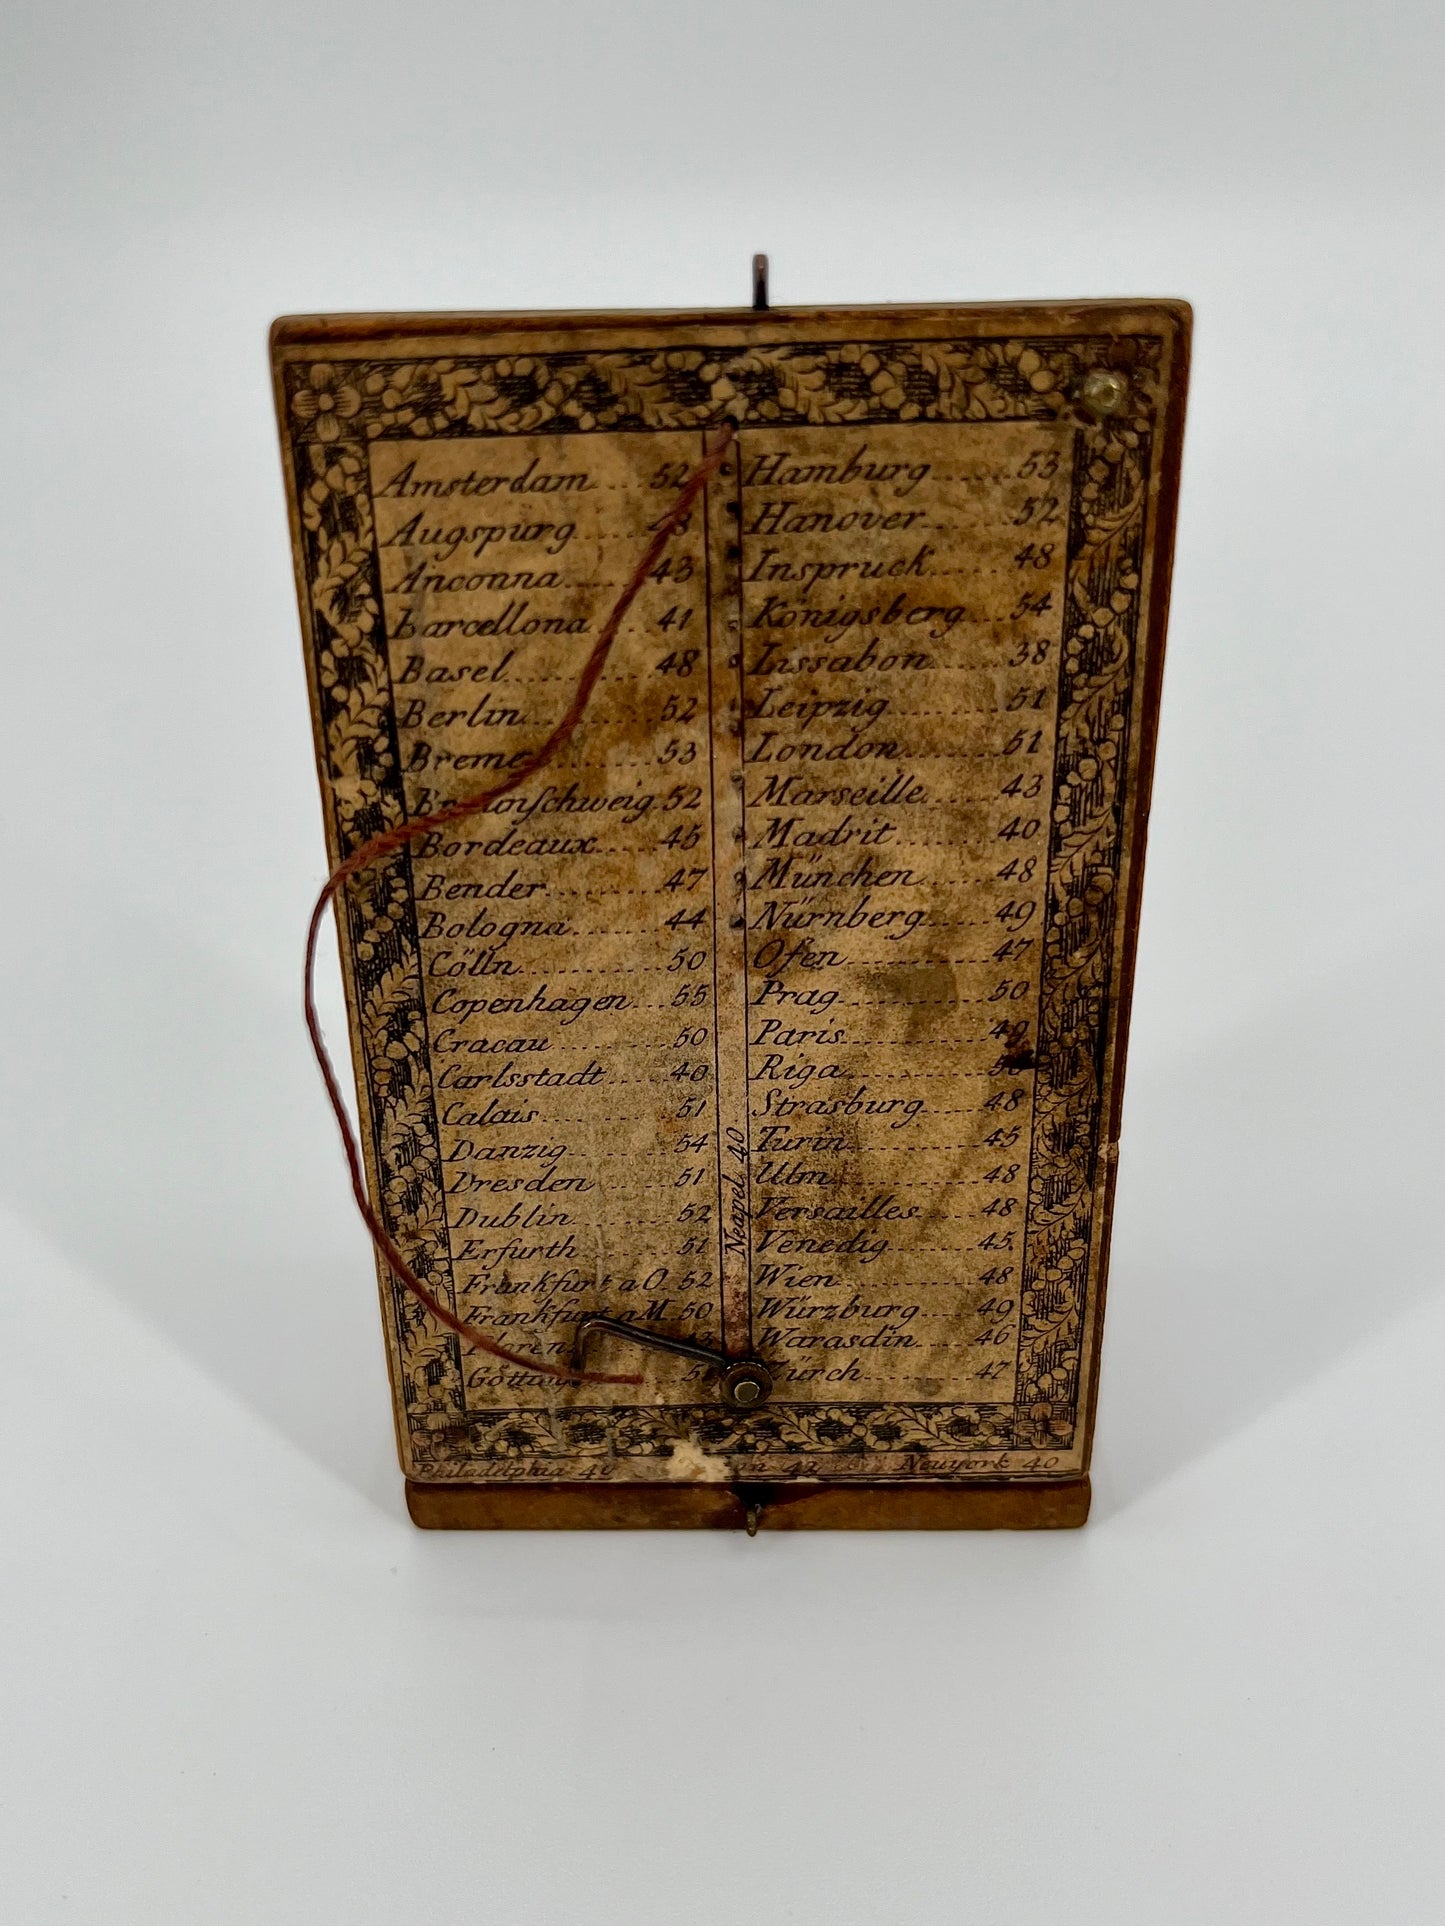 Amsterdam 52
Augspurg 48
Anconna 43
Barcellona 41
Basel 48
Berlin 52
Breme 53
Braunschweig 52
Bordeaux 45
Bender 47
Bologna 44
Cölln 50
Copenhagen 55
Cracau 50
Carlsstadt 40
Calais 51
Danzig 54
Dresden 51
Dublin 52
Erfurth 51
Frankfurt a O. 52
Frankfurt a M. 50
Floren 43
Götting
Neapel 40
Hamburg 53
Hanover 52
Inspruck 48
Königsberg 54
Lissabon 38
Leipzig 51
London 51
Marseille 43
Madrit 40
München 48
Nürnberg 49
Ofen 47
Prag 50
Paris 49
Riga
Strasburg 48
Turin 45
Ulm 48
Versailles 48
Venedig 45
Wien 48
Würzburg 49
Warasdin 46
Zürch 47
Philadelphia 40 42 Neuyork 40